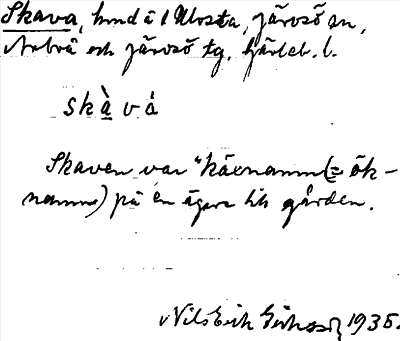 Skava, hmd å 1 Ulvsta, Järvsö sn,
Arbrå och Järvsö tg, Gävleb. l.
skàvá
Skaven var "käenamn (= ök-
namn) på en ägare till gården.
Nils Erik Eriksson 1935.